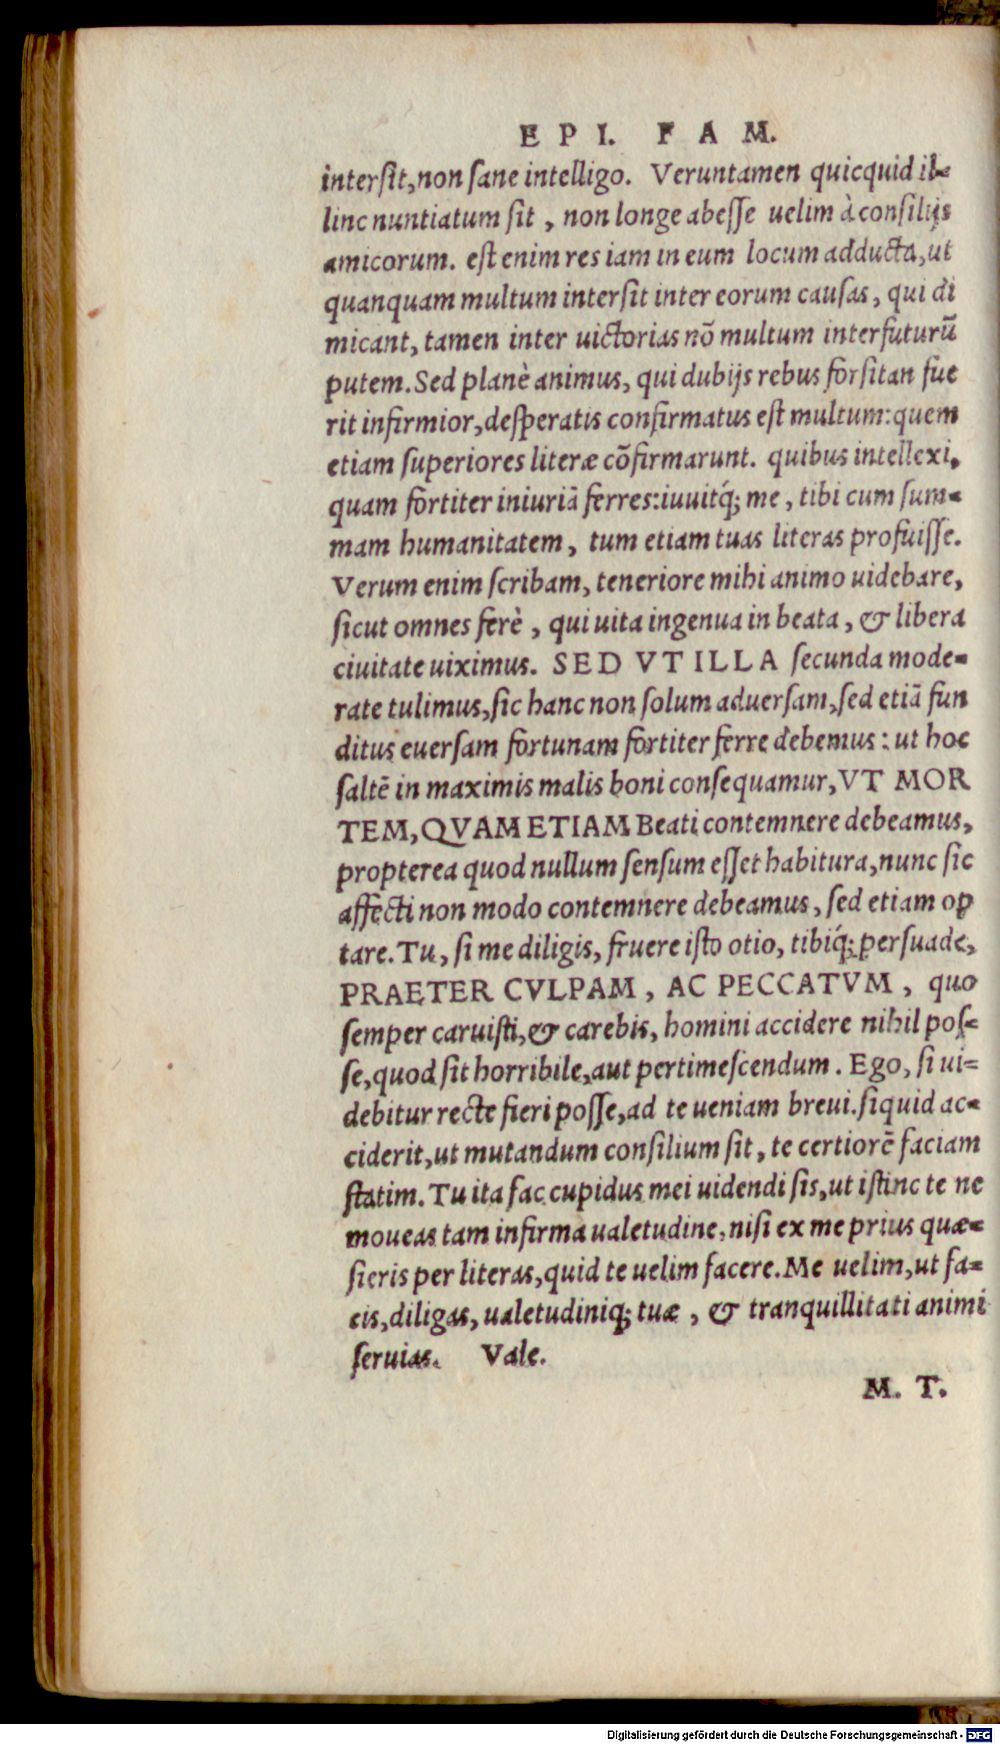 EPI. FAM.
intersit, non sane intelligo. Veruntamen quicquid il-
linc nuntiatum sit, non longe abesse uelim à consilijs
amicorum. est enim res iam in eum locum adducta, ut
quanquam multum intersit inter eorum causas, qui di
micant, tamen inter uictorias nõ multum interfuturũ
putem. Sed planè animus, qui dubijs rebus forsitan fue
rit infirmior, desperatis confirmatus est multum: quem
etiam superiores literæ cõfirmarunt. quibus intellexi,
quam fortiter iniuriã ferres: iuuitq́; me, tibi cum sum-
mam humanitatem, tum etiam tuas literas profuisse.
Verum enim scribam, teneriore mihi animo uidebare,
sicut omnes ferè, qui uita ingenua in beata, & libera
ciuitate uiximus. SED VT ILLA secunda mode-
rate tulimus, sic hanc non solum aduersam, sed etiã fun
ditus euersam fortunam fortiter ferre debemus: ut hoc
saltẽ in maximis malis boni consequamur, VT MOR
TEM, QVAM ETIAM Beati contemnere debeamus,
propterea quod nullum sensum esset habitura, nunc sic
affecti non modo contemnere debeamus, sed etiam op
tare. Tu, si me diligis, fruere isto otio, tibiq́; persuade,
PRAETER CVLPAM, AC PECCATVM, quo
semper caruisti, & carebis, homini accidere nihil pos-
se, quod sit horribile, aut pertimescendum. Ego, si ui-
debitur recte fieri posse, ad te ueniam breui. siquid ac-
ciderit, ut mutandum consilium sit, te certiorẽ faciam
statim. Tu ita fac cupidus mei uidendi sis, ut istinc te ne
moueas tam infirma ualetudine, nisi ex me prius quæ-
sieris per literas, quid te uelim facere. Me uelim, ut fa-
cis, diligas, ualetudiniq; tuæ, & tranquillitati animi
seruias. Vale.
M. T.
Digitalisierung gefördert durch die Deutsche Forschungsgemeinschaft - DFG